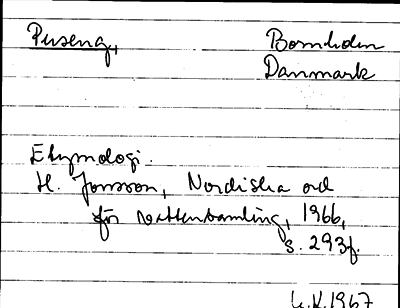 Puseng,
Bornholm
Danmark
Etymologi.
H. Jonsson, Nordiska ord
för vattensamling, 1966,
s. 293f.
G.K. 1967